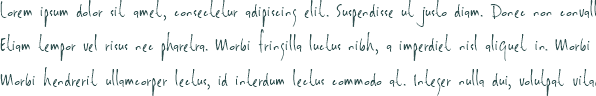 Lorem ipsum dolor sit amet, consectetur adipiscing elit. Suspendisse ut justo diam. Donec non convall
Etiam tempor vel risus nec pharetra. Morbi fringilla luctus nibh, a imperdiet nisl aliquet in. Morbi
Morbi hendrerit ullamcorper lectus, id interdum lectus commodo at. Integer nulla dui, volutpat vita